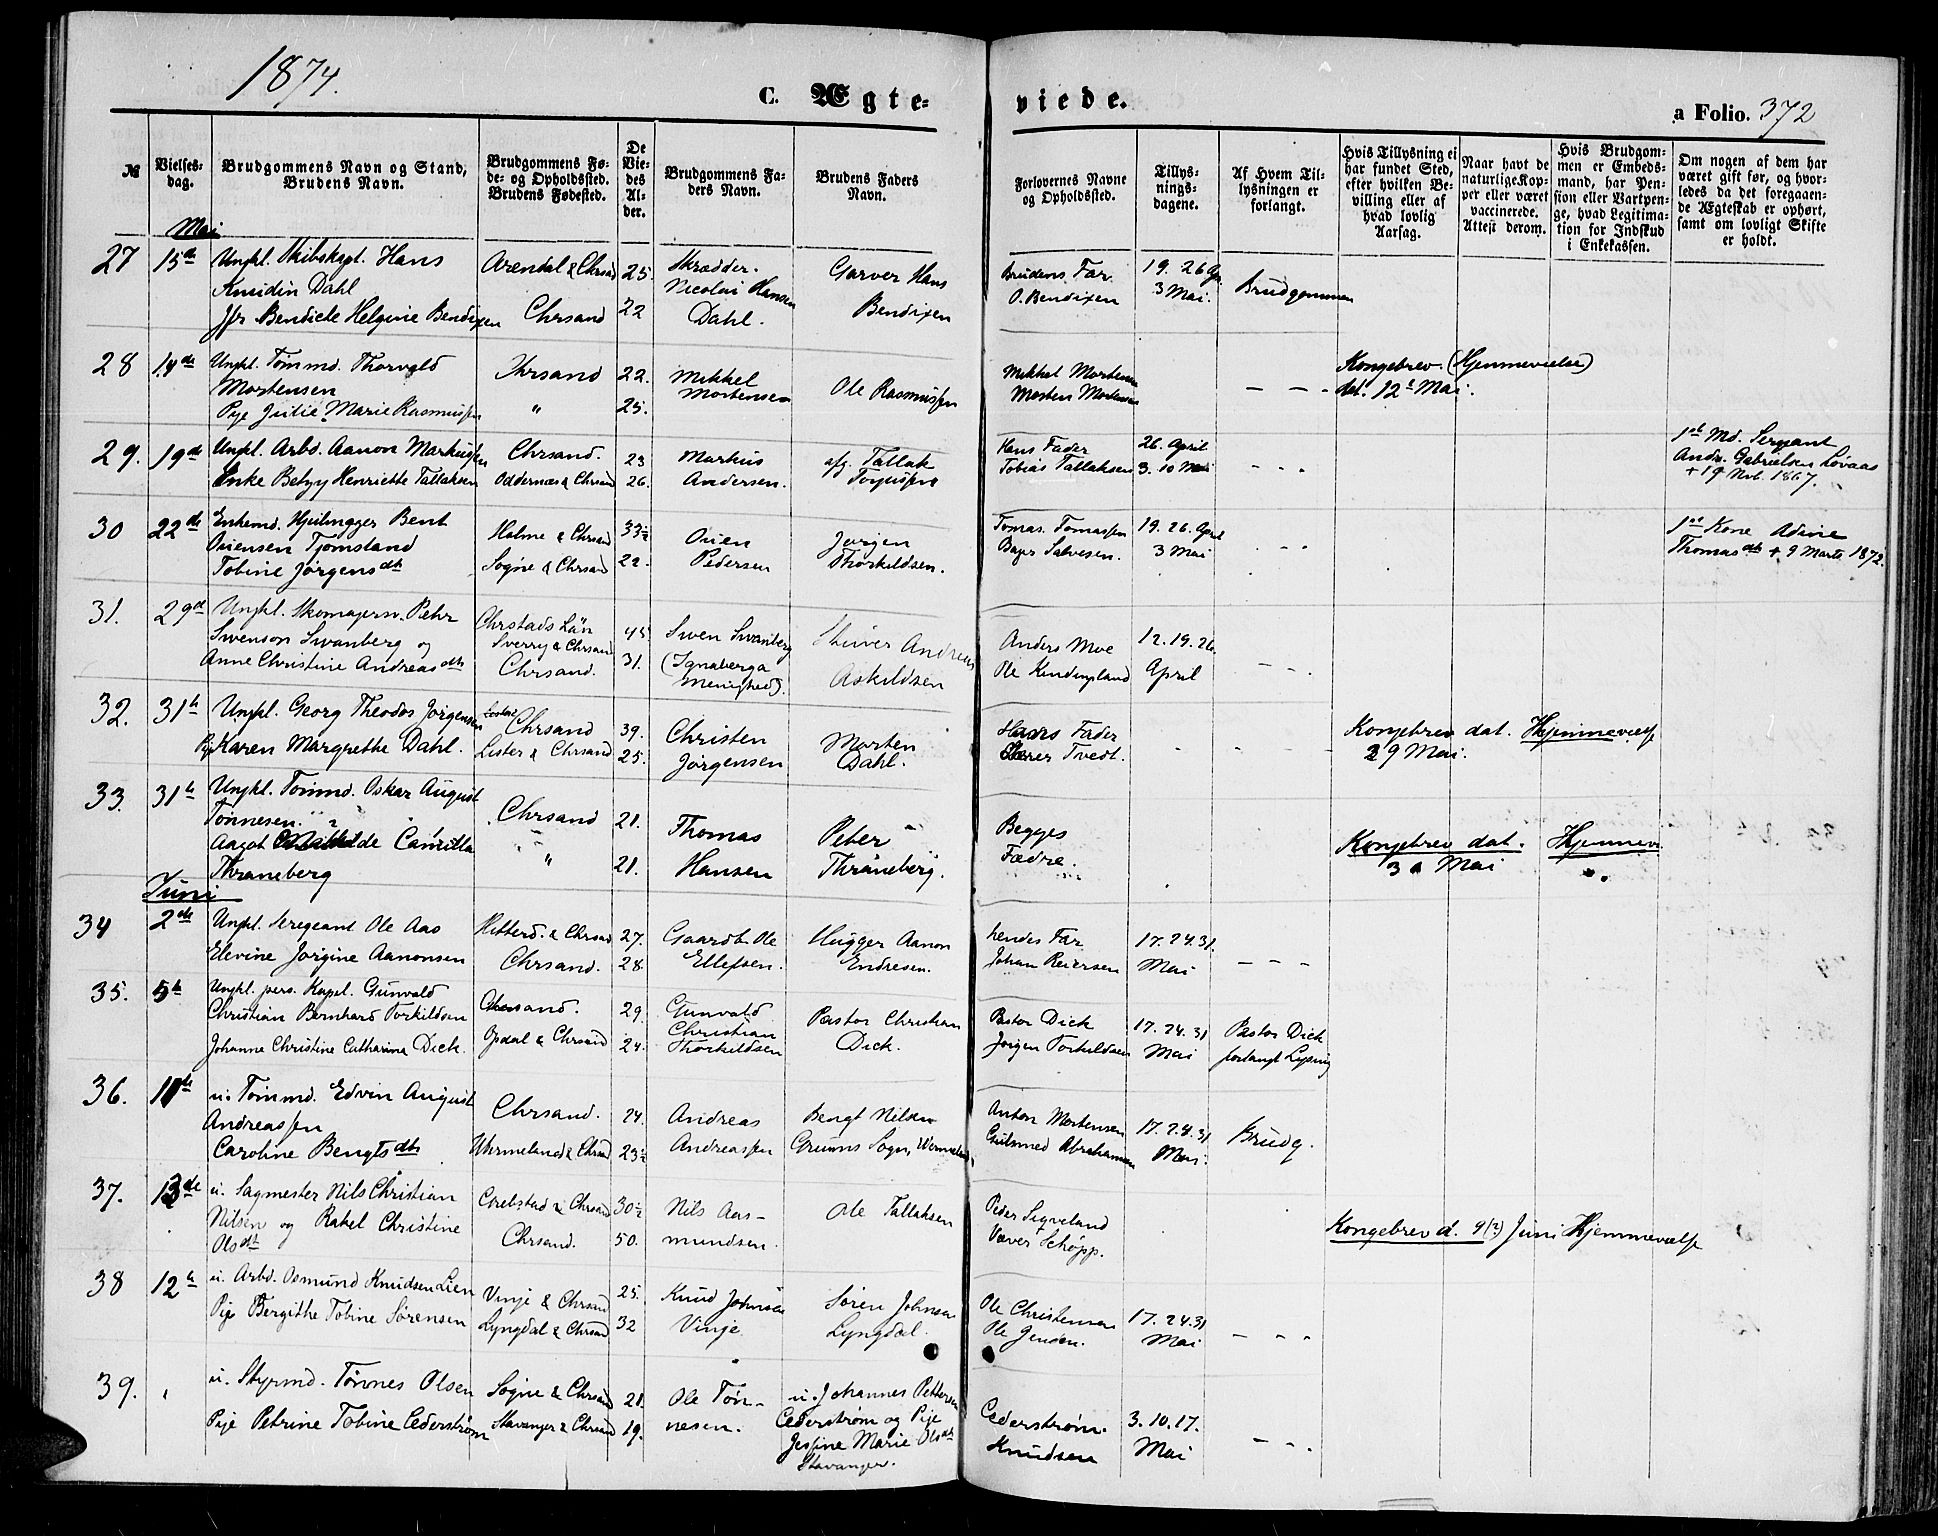 1874.
C. Ægte-
viede.
a Folio. 372
№
Vielses-
dag.
Brudgommens Navn og Stand,
Brudens Navn.
Brudgommens Fø-
de- og Opholdssted.
Brudens Fødested.
De
Vie-
des
Al-
der.
Brudgommens Fa-
ders Navn.
Brudens Faders
Navn.
Forlovernes Navne
og Opholdssted.
Tillys-
nings-
dagene.
Af Hvem Til-
lysningen er
forlangt.
Hvis Tillysning ei
har fundet Sted,
efter hvilken Be-
villing eller af
hvad lovlig
Aarsag.
Naar havt de
naturlige Kop-
per eller været
vaccinerede.
Attest derom.
Hvis Brudgom-
men er Embeds-
mand, har Pen-
sion eller Vartpen-
ge, hvad Legitima-
tion for Indskud
i Enkekassen.
Om nogen af dem har
været gift før, og hvor-
ledes da det foregaaen-
de Ægteskab er ophørt,
samt om lovligt Skifte
er holdt.
Mai
27 15de Ungkl. Skibskapt. Hans
Knudin Dahl
Jfr Bendicte Helgine Bendixen
Arendal & Chrsand
Chrsand
25.
22
Skrædder.
Nicolai Hansen
Dahl.
Garver Hans
Bendixen
Brudens Far
O. Bendixen
19. 26 Ap.
3 Mai.
Brudgommen
28 14de Ungkl. Tømmd. Thorvald
Mortensen
Pige Julie Marie Rasmussen
Chrsand
"
22.
25.
Mikkel
Mortensen
Ole Rasmussen
Mikkel Mortensen
Morten Mortensen
— — -
Kongebrev (Hjemmevielse)
dat. 12t Mai.
29. 19de Ungkl. Arbd. Aanon Markussen
Enke Betzy Henriette Tallaksen
Chrsand.
Oddernæs & Chrsand
23
26.
Markus
Andersen.
afg. Tallak
Torjussen
Hans Fader
Tobias Tallaksen
26. April
3. 10 Mai
- - -
1st Md. Sergeant
Andr. Gabrielsen Løvaas
+ 19 Nvb. 1867.
30 22de Enkemd. Hjulmgger Bent
Osiensen Tjomstand
Tobine Jørgensdt
Holme & Chrsand
Søgne & Chrsand
33½
22.
Osien
Pedersen
Jørgen
Thorkildsen.
Tomas. Tomassen
Salvesen.
19. 26. April
3 Mai
. - -
1st Kone Adine
Thomasdt + 9 Marts 1872.
31. 29de Ungkl. Skomagersv. Pehr
Swenson Swanberg og
Anne Christine Andreasdt
Chrstads Län
Sverrig & Chrsand
Chrsand.
45
31.
Swen Swanberg
(Ignaberga
Menighed).
Andreas
Askildsen
Anders Moe
Ole
12. 19. 26.
April
— - .
32. 31te Ungkl. Georg Theodor Jørgensen
Pige Karen Margrethe Dahl.
Chrsand
Lister & Chrsand
39.
25.
Christen
Jørgensen
Morten
Dahl.
Hans Fader
Tvedt.
- - -
Kongebrev dat. Hjemmevielse
29 Mai.
33. 31te Ungkl. Tømmd. Oskar August
Tønnesen
Aagot Mathilde Camilla
Thraneberg
Chrsand
"
21.
21.
Thomas
Hansen
Peter
Thraneberg.
Begges
Fædre.
Kongebrev dat. Hjemmev.
30 Mai
Juni
34 2de Ungkl. Sergeant Ole Aas
Elevine Jørgine Aanonsen
Hitterd. & Chrsand
Chrsand.
27.
28.
Gaardb. Ole
Ellefsen.
Hugger Aanon
Endresen.
hendes Far
Johan Reiersen
17. 24. 31.
Mai
— — -
35. 5te Ungkl. pers. Kapel. Gunvald
Christian Bernhard Torkildsen
Johanne Christine Catharina Dick.
Chrsand.
Opdal & Chrsand
29.
24.
Gunvald
Christian
Thorkildsen
Pastor Christian
Dick.
Pastor Dick
Jørgen Torkildsen
17. 24. 31
Mai
Pastor Dick
forlangt Lysning
36. 11te u. Tømmd. Edvin August
Andreassen
Caroline Bengtsdtr
Chrsand.
Wermeland & Chrsand
24.
23½
Andreas
Andreassen
Bengt Nilsen
Grums Sogn, Wermeland
Anton Mortensen
Abrahamsen
17. 24. 31
Mai.
Brudg.
37. 13de u. Sagmester Nils Christian
Nilsen og Rakel Christine
Olsdt
Carlstad & Chrsand
Chrsand.
30½
50.
Nils Aas-
mundsen.
Ole Tallaksen
Peder Sigveland
Væver Schøpp.
Kongebrev d. 9(?) Juni Hjemmevielse
38 12te u. Arbd. Osmund Knudsen Lien
Pige Bergithe Tobine Sørensen
Vinje & Chrsand
Lyngdal & Chrsand
25.
32
Knud Johnsen
Vinje
Søren Johnsen
Lyngdal.
Ole Christensen
Ole Jensen.
17. 24. 31
Mai
— - -
39. " u. Styrmd. Tønnes Olsen
Pige Petrine Tobine Cederstrøm
Søgne & Chrsand
Stavanger & Chrsand
21.
19.
Ole Tøn-
nesen.
u. Johannes Pettersen
Cederstrøm og Pige
Jessine Marie Olsdt
Stavanger.
Cederstrøm.
Knudsen
3. 10. 17.
Mai
— - -